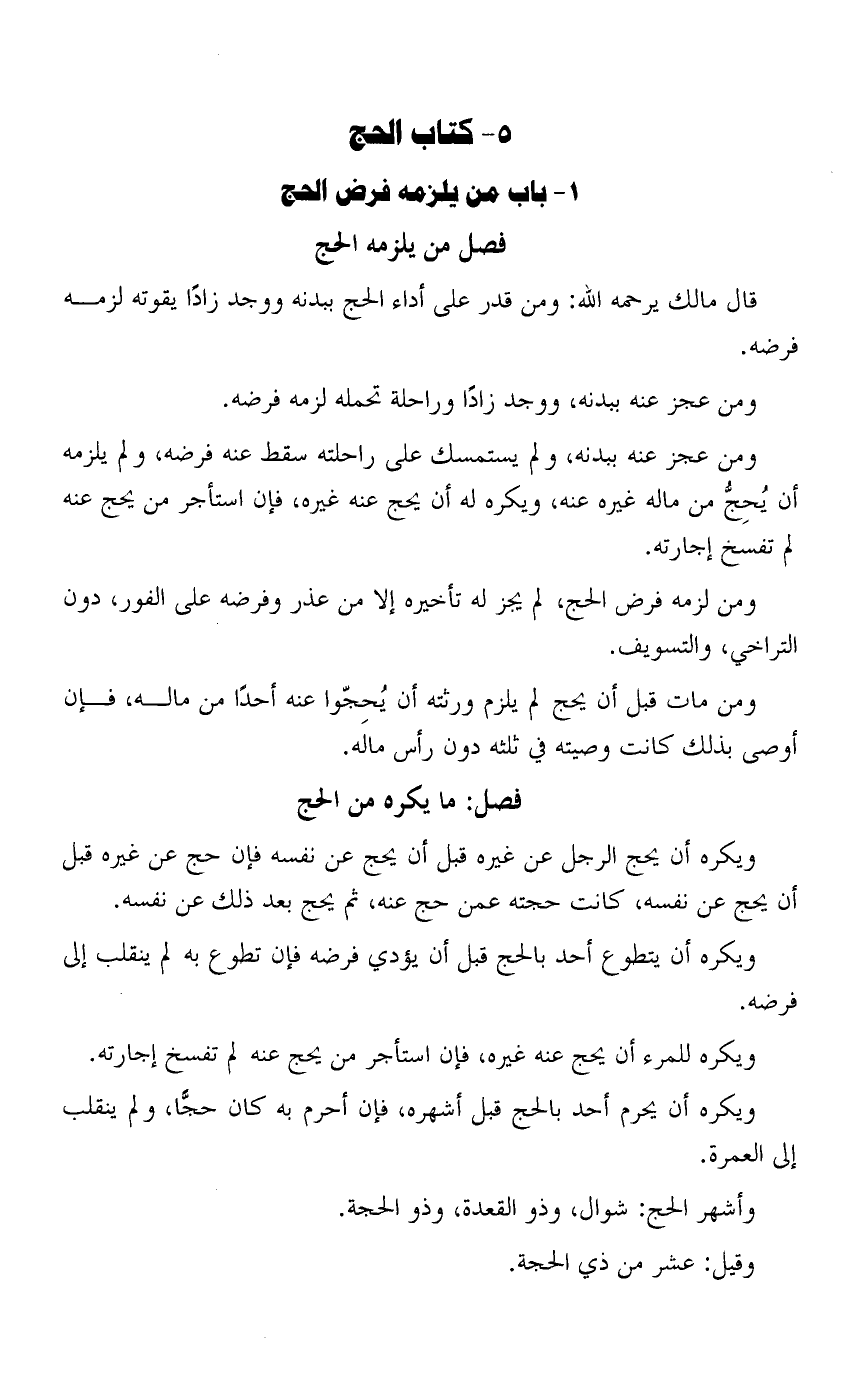 ٥- كتاب الحج
١- باب من يلزمه فرض الحج
فصل من يلزمه الحج
قال مالك يرحمه الله: ومن قدر على أداء الحج ببدنه ووجد زادًا يقوته لزمـــه
فرضه.
ومن عجز عنه ببدنه، ووجد زادًا وراحلة تحمله لزمه فرضه.
ومن عجز عنه ببدنه، ولم يستمسك على راحلته سقط عنه فرضه، ولم يلزمه
أن يُحِجُّ من ماله غيره عنه، ويكره له أن يحج عنه غيره، فإن استأجر من يحج عنه
لم تفسخ إجارته.
ومن لزمه فرض الحج، لم يجز له تأخيره إلا من عذر وفرضه على الفور، دون
التراخي، والتسويف.
ومن مات قبل أن يحج لم يلزم ورثته أن يُحِجّوا عنه أحدًا من مالـــه، فـــإن
أوصى بذلك كانت وصيته في ثلثه دون رأس ماله.
فصل: ما يكره من الحج
ويكره أن يحج الرجل عن غيره قبل أن يحج عن نفسه فإن حج عن غيره قبل
أن يحج عن نفسه، كانت حجته عمن حج عنه، ثم يحج بعد ذلك عن نفسه.
ويكره أن يتطوع أحد بالحج قبل أن يؤدي فرضه فإن تطوع به لم ينقلب إلى
فرضه.
ويكره للمرء أن يحج عنه غيره، فإن استأجر من يحج عنه لم تفسخ إجارته.
ويكره أن يحرم أحد بالحج قبل أشهره، فإن أحرم به كان حجًّا، ولم ينقلب
إلى العمرة.
وأشهر الحج: شوال، وذو القعدة، وذو الحجة.
وقيل: عشر من ذي الحجة.